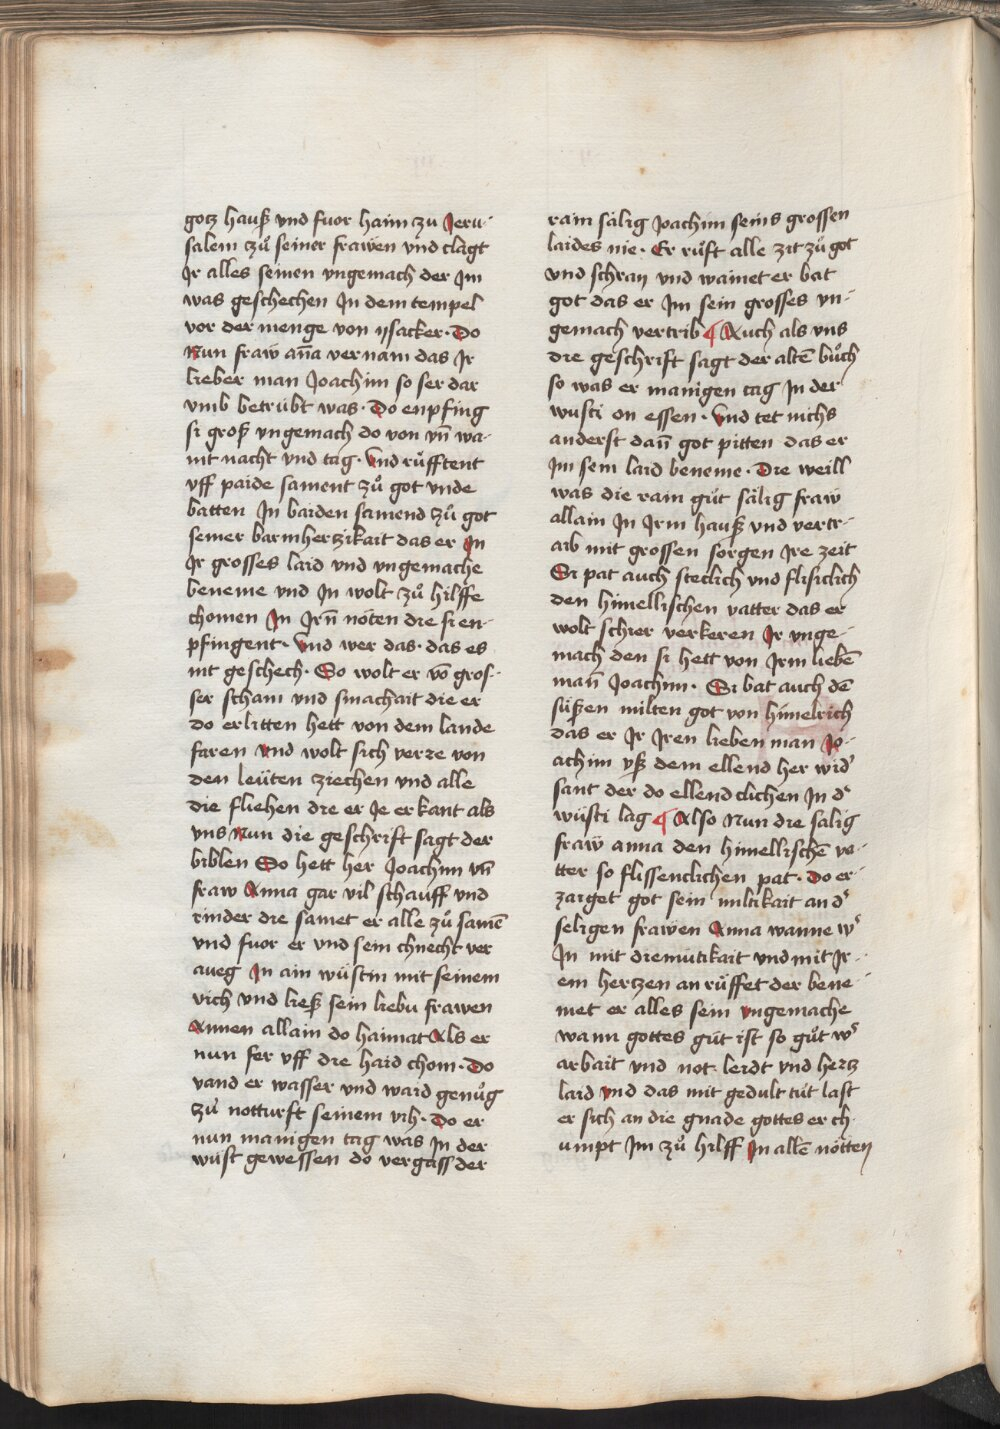 gotz hauß vnd fuor haim zu Jeru-
salem zů seiner frawen vnd clagt
Jr alles seinen vngemach der Jm
was geschechen Jn dem tempel
vor der menge von ysacker· Do
Nun fraw an̄a vernam das Jr
lieber man Joachim so ser dar
vmb betrübt was· Do enpfing
si groß vngemach do von vn̄ wa-
int nacht vnd tag· vnd růfftent
vff paide sament zů got vnde
batten Jn baiden samend zů got
seiner barmherzikait das er Jn
Jr grosses laid vnd vngemache
beneme vnd Jn wolt zů hilffe
chomen Jn Jrn̄ nöten die si en-
pfingent· Vnd wer das· das es
nit geschech· So wolt er vō gros-
ser scham vnd smachait die er
do erlitten hett von dem lande
faren vnd wolt sich verre von
den leüten ziechen vnd alle
die fliehen die er Je erkant als
vns Nun die geschrift sagt der
biblen So hett her Joachim vn̄
fraw Anna gar vil schauff vnd
rinder die samet er alle zů samē
vnd fuor er vnd sein chnecht ver
aueg Jn ain wüstin mit seinem
vich vnd ließ sein liebu frawen
Annen allain do haimat Als er
nun fer vff die haid chom· Do
vand er wasser vnd waid genůg
zů notturft seinem vih· Do er
nun manigen tag was Jn der
wüst gewessen do vergass der
rain sälig Joachim seins grossen
laides nie· Er rüft alle zit zů got
vnd schray vnd wainet er bat
got das er Jm sein grosses vn-
gemach vertrib ¶ Auch als vns
die geschrift sagt der altē bůch
so was er manigen tag Jn der
wusti on essen· Vnd tet nichs
anderst dan̄ got pitten das er
Jm sein laid beneme· Die weill
was die rain gůt sälig fraw
allain Jn Jrm hauß vnd vertr-
aib mit grossen sorgen Jre zeit
Si pat auch steclich vnd flisiclich
den himellischen vatter das er
wolt schier verkeren Jr vnge-
mach den si hett von Jrm liebē
man̄ Joachim· Si bat auch dē
süßen milten got von himelrich
das er Jr Jren lieben man Jo-
achim vß dem ellend her wid᾽
sant der do ellendclichen Jn d᾽
wüsti lag ¶ Also Nun die salig
fraw anna den himellischē va-
tter so flissenclichen pat· Do er-
zaiget got sein miltikait an d᾽
seligen frawen Anna wanne w᾽
Jn mit diemütikait vnd mit Jr-
em hertzen an rüffet der bene-
met er alles sein vngemache
wann gottes güt ist so gůt w᾽
arbait vnd not leidt vnd hertz
laid vnd das mit gedult tüt last
er sich an die gnade gottes er ch-
umpt Jm zů hilff Jn allē nötten